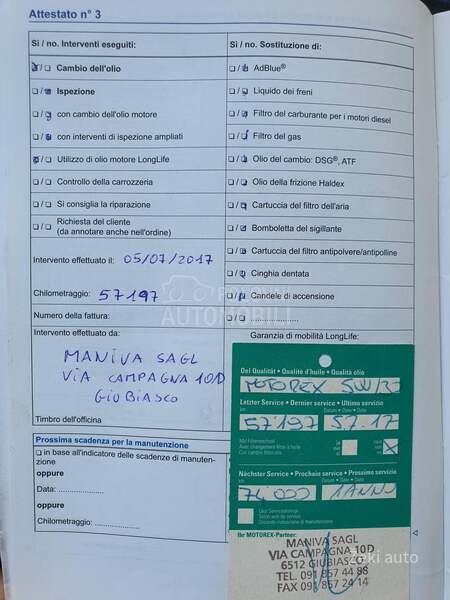 Attestato n° 3
Si / no. Interventi eseguiti:
Cambio dell'olio
Ispezione
con cambio dell'olio motore
con interventi di ispezione ampliati
Utilizzo di olio motore LongLife
Controllo della carrozzeria
Si consiglia la riparazione
Richiesta del cliente
(da annotare anche nell'ordine)
Intervento effettuato il: 05/07/2017
Chilometraggio: 57197
Numero della fattura:
Intervento effettuato da:
MANIVA SAGL
VIA CAMPAGNA 10D
GIUBIASCO
Timbro dell'officina
Prossima scadenza per la manutenzione
in base all'indicatore delle scadenze di manutenzione
oppure
Data:
oppure
Chilometraggio:
Si / no. Sostituzione di:
AdBlue®
Liquido dei freni
Filtro del carburante per i motori diesel
Filtro del gas
Olio del cambio: DSG®, ATF
Olio della frizione Haldex
Cartuccia del filtro dell'aria
Bomboletta del sigillante
Cartuccia del filtro antipolvere/antipolline
Cinghia dentata
Candele di accensione
Garanzia di mobilità LongLife:
Öel Qualität • Qualité d'huile • Qualità olio
MOTOREX 5W/30
Letzter Service • Dernier service • Ultimo servizio
57197 5.7.17
Mit Filterwechsel
Avec changement filtre à huile
Con cambio filtro olio
Nächster Service • Prochain service • Prossimo servizio
74000 1ANNO
Ihr MOTOREX-Partner:
MANIVA SAGL
VIA CAMPAGNA 10D
6512 GIUBIASCO
TEL. 091 857 44 88
FAX 091 857 24 14
POLOVNI
AUTOMOBILI
Zeki auto